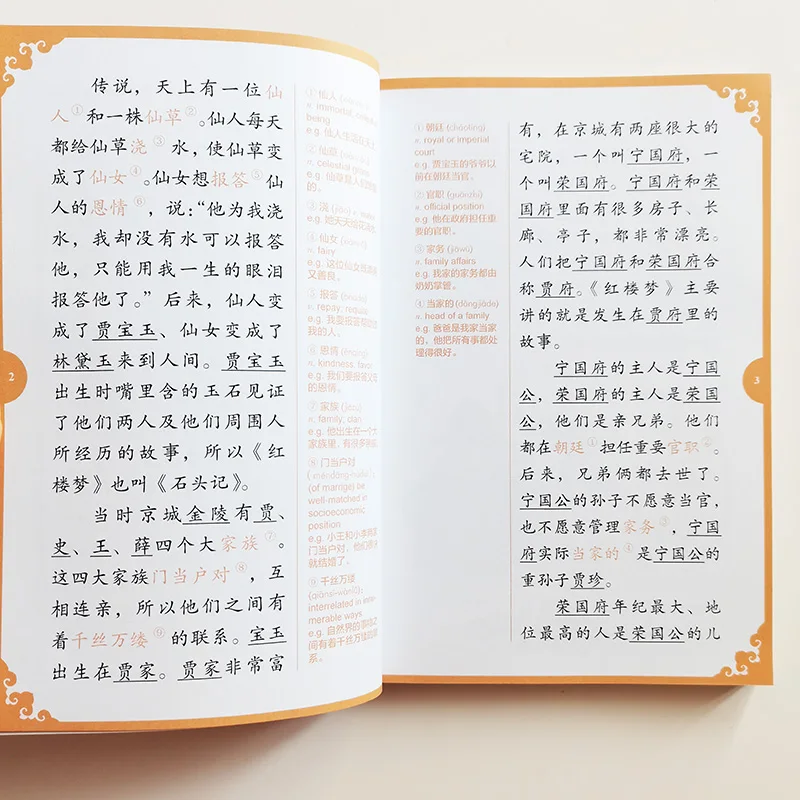 传说，天上有一位仙
人①和一株仙草②。仙人每天
都给仙草浇③水，使仙草变
成了仙女④。仙女想报答⑤仙
人的恩情⑥，说：“他为我浇
水，我却没有水可以报答
他，只能用我一生的眼泪
报答他了。”后来，仙人变
成了贾宝玉、仙女变成了
林黛玉来到人间。贾宝玉
出生时嘴里含的玉石见证
了他们两人及他们周围人
所经历的故事，所以《红
楼梦》也叫《石头记》。
当时京城金陵有贾、
史、王、薛四个大家族⑦。
这四大家族门当户对⑧，互
相连亲，所以他们之间有
着千丝万缕⑨的联系。宝玉
出生在贾家。贾家非常富
① 仙人
n. immortal
being
e.g. 仙人生活在天上
② 仙草
n. celestial
的。
③ 浇
e.g. 她天天给花浇水
④ 仙女
n. fairy
e.g. 这位仙女
又善良。
⑤ 报答
v. repay
e.g. 我要报答
我的人。
⑥ 恩情
n. kindness
e.g. 我们要报答父母
的恩情。
⑦ 家族
n. family, clan
e.g. 他出生在一个大
家族里，有很多
⑧ 门当户对
(of marrige) be
well-matched in
socioeconomic
position
e.g. 小王和小李
门当户对，他们
就结婚了。
⑨ 千丝万缕
(qiānsī-wànlǚ)
interrelated in
merable ways
e.g. 自然界的
间有着千丝万缕的
系。
2
① 朝廷 (cháotíng)
n. royal or imperial
court
e.g. 贾宝玉的爷爷以
前在朝廷当官。
② 官职 (guānzhí)
n. official position
e.g. 他在政府担任重
要的官职。
③ 家务 (jiāwù)
n. family affairs
e.g. 我家的家务都由
奶奶掌管。
④ 当家的 (dāngjiāde)
n. head of a family
e.g. 爸爸是我家当家
的，他把所有事都处
理得很好。
有，在京城有两座很大的
宅院，一个叫宁国府，一
个叫荣国府。宁国府和荣
国府里面有很多房子、长
廊、亭子，都非常漂亮。
人们把宁国府和荣国府合
称贾府。《红楼梦》主要
讲的就是发生在贾府里的
故事。
宁国府的主人是宁国
公，荣国府的主人是荣国
公，他们是亲兄弟。他们
都在朝廷①担任重要官职②。
后来，兄弟俩都去世了。
宁国公的孙子不愿意当官，
也不愿意管理家务③，宁国
府实际当家的④是宁国公的
重孙子贾珍。
荣国府年纪最大、地
位最高的人是荣国公的儿
3